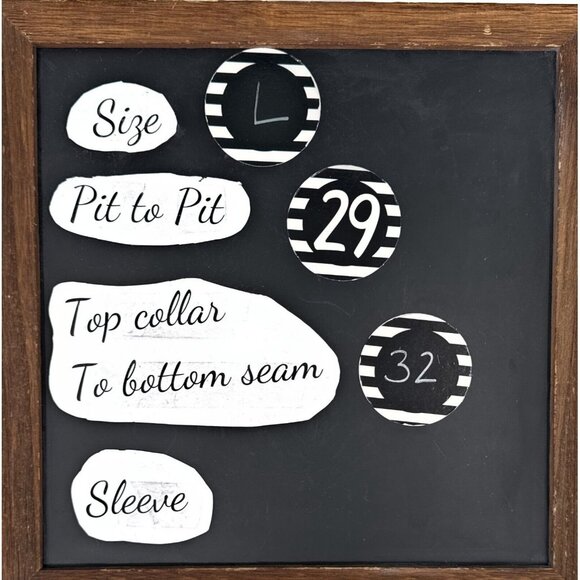 Size L
Pit to Pit 29
Top collar
To bottom seam 32
Sleeve